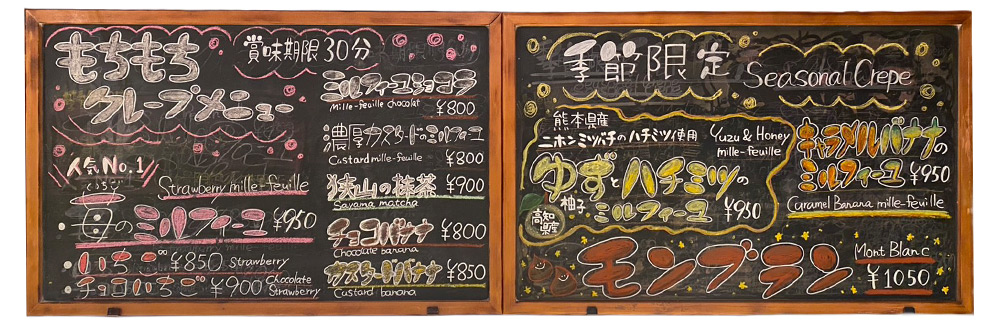 もちもち
クレープメニュー
賞味期限30分
人気No.1
Strawberry mille-feuille
苺のミルフィーユ ¥950
いちご ¥850 Strawberry
チョコいちご ¥900 Chocolate Strawberry
ミルフィーユショコラ
Mille-feuille chocolat ¥800
濃厚カスタードのミルフィーユ
Custard mille-feuille ¥800
狭山の抹茶 ¥900
Sayama matcha
チョコバナナ ¥800
Chocolate banana
カスタードバナナ ¥850
Custard banana
季節限定 Seasonal Crepe
熊本県産
ニホンミツバチのハチミツ使用
Yuzu & Honey
mille-feuille
ゆずとハチミツの
柚子
ミルフィーユ ¥950
高知
県産
キャラメルバナナの
ミルフィーユ ¥950
Caramel Banana mille-feuille
モンブラン
Mont Blanc
¥1050